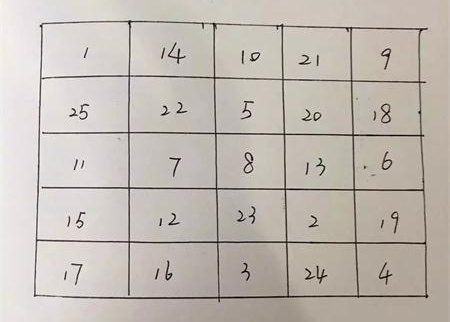 1 14 10 21 9
25 22 5 20 18
11 7 8 13 6
15 12 23 2 19
17 16 3 24 4